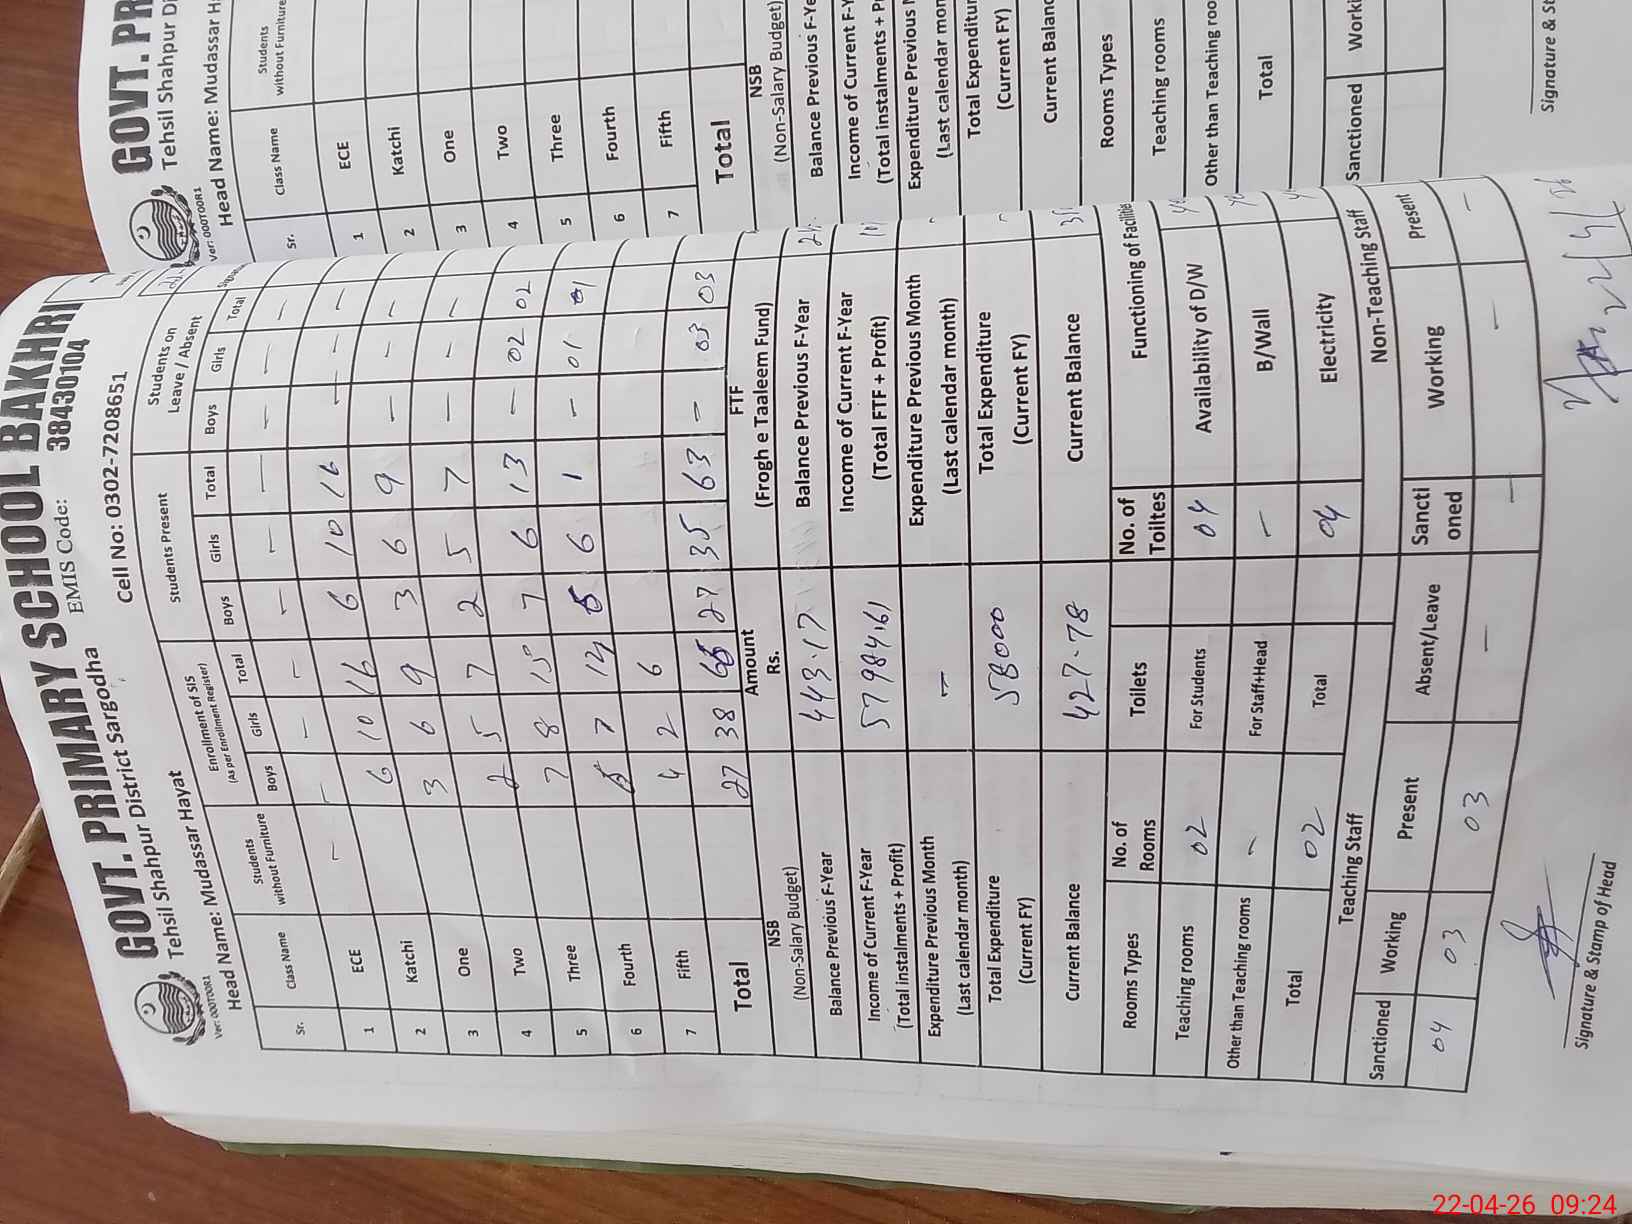 GOVT. PRIMARY SCHOOL BAKHRI
Tehsil Shahpur District Sargodha EMIS Code: 38430104
Ver: 000TOOR1
Head Name: Mudassar Hayat Cell No: 0302-7208651
Sr. Class Name Students without Furniture Enrollment of SIS (As per Enrollment Register) Students Present Students on Leave / Absent
Boys Girls Total Boys Girls Total Boys Girls Total
— — — — — — — — — —
1 ECE 6 10 16 6 10 16 — — —
2 Katchi 3 6 9 3 6 9 — — —
3 One 2 5 7 2 5 7 — — —
4 Two 7 8 15 7 6 13 — 02 02
5 Three 7 12 6 1 — 01 01
6 Fourth 2 6
7 Fifth 4
Total 27 38 27 35 63 — 03 03
NSB (Non-Salary Budget) Amount Rs. FTF (Frogh e Taaleem Fund)
Balance Previous F-Year 443.17 Balance Previous F-Year
Income of Current F-Year (Total instalments + Profit) 57984.61 Income of Current F-Year (Total FTF + Profit)
Expenditure Previous Month (Last calendar month) — Expenditure Previous Month (Last calendar month)
Total Expenditure (Current FY) 58000 Total Expenditure (Current FY)
Current Balance 427.78 Current Balance
Rooms Types No. of Rooms Toilets No. of Toiltes Functioning of Facilities
Teaching rooms 02 For Students 04 Availability of D/W
Other than Teaching rooms — For Staff+Head — B/Wall
Total 02 Total 04 Electricity
Teaching Staff Non-Teaching Staff
Sanctioned Working Present Absent/Leave Sancti oned Working Present
04 03 03 — — — —
Signature & Stamp of Head
GOVT. PR
Tehsil Shahpur Di
Ver: 000TOOR1
Head Name: Mudassar H
Sr. Class Name Students without Furniture
1 ECE
2 Katchi
3 One
4 Two
5 Three
6 Fourth
7 Fifth
Total
NSB
(Non-Salary Budget)
Balance Previous F-Ye
Income of Current F-Y
(Total instalments + Pr
Expenditure Previous
(Last calendar mon
Total Expenditur
(Current FY)
Current Balanc
Rooms Types
Teaching rooms
Other than Teaching roo
Total
Sanctioned Worki
Signature & St
22-04-26 09:24